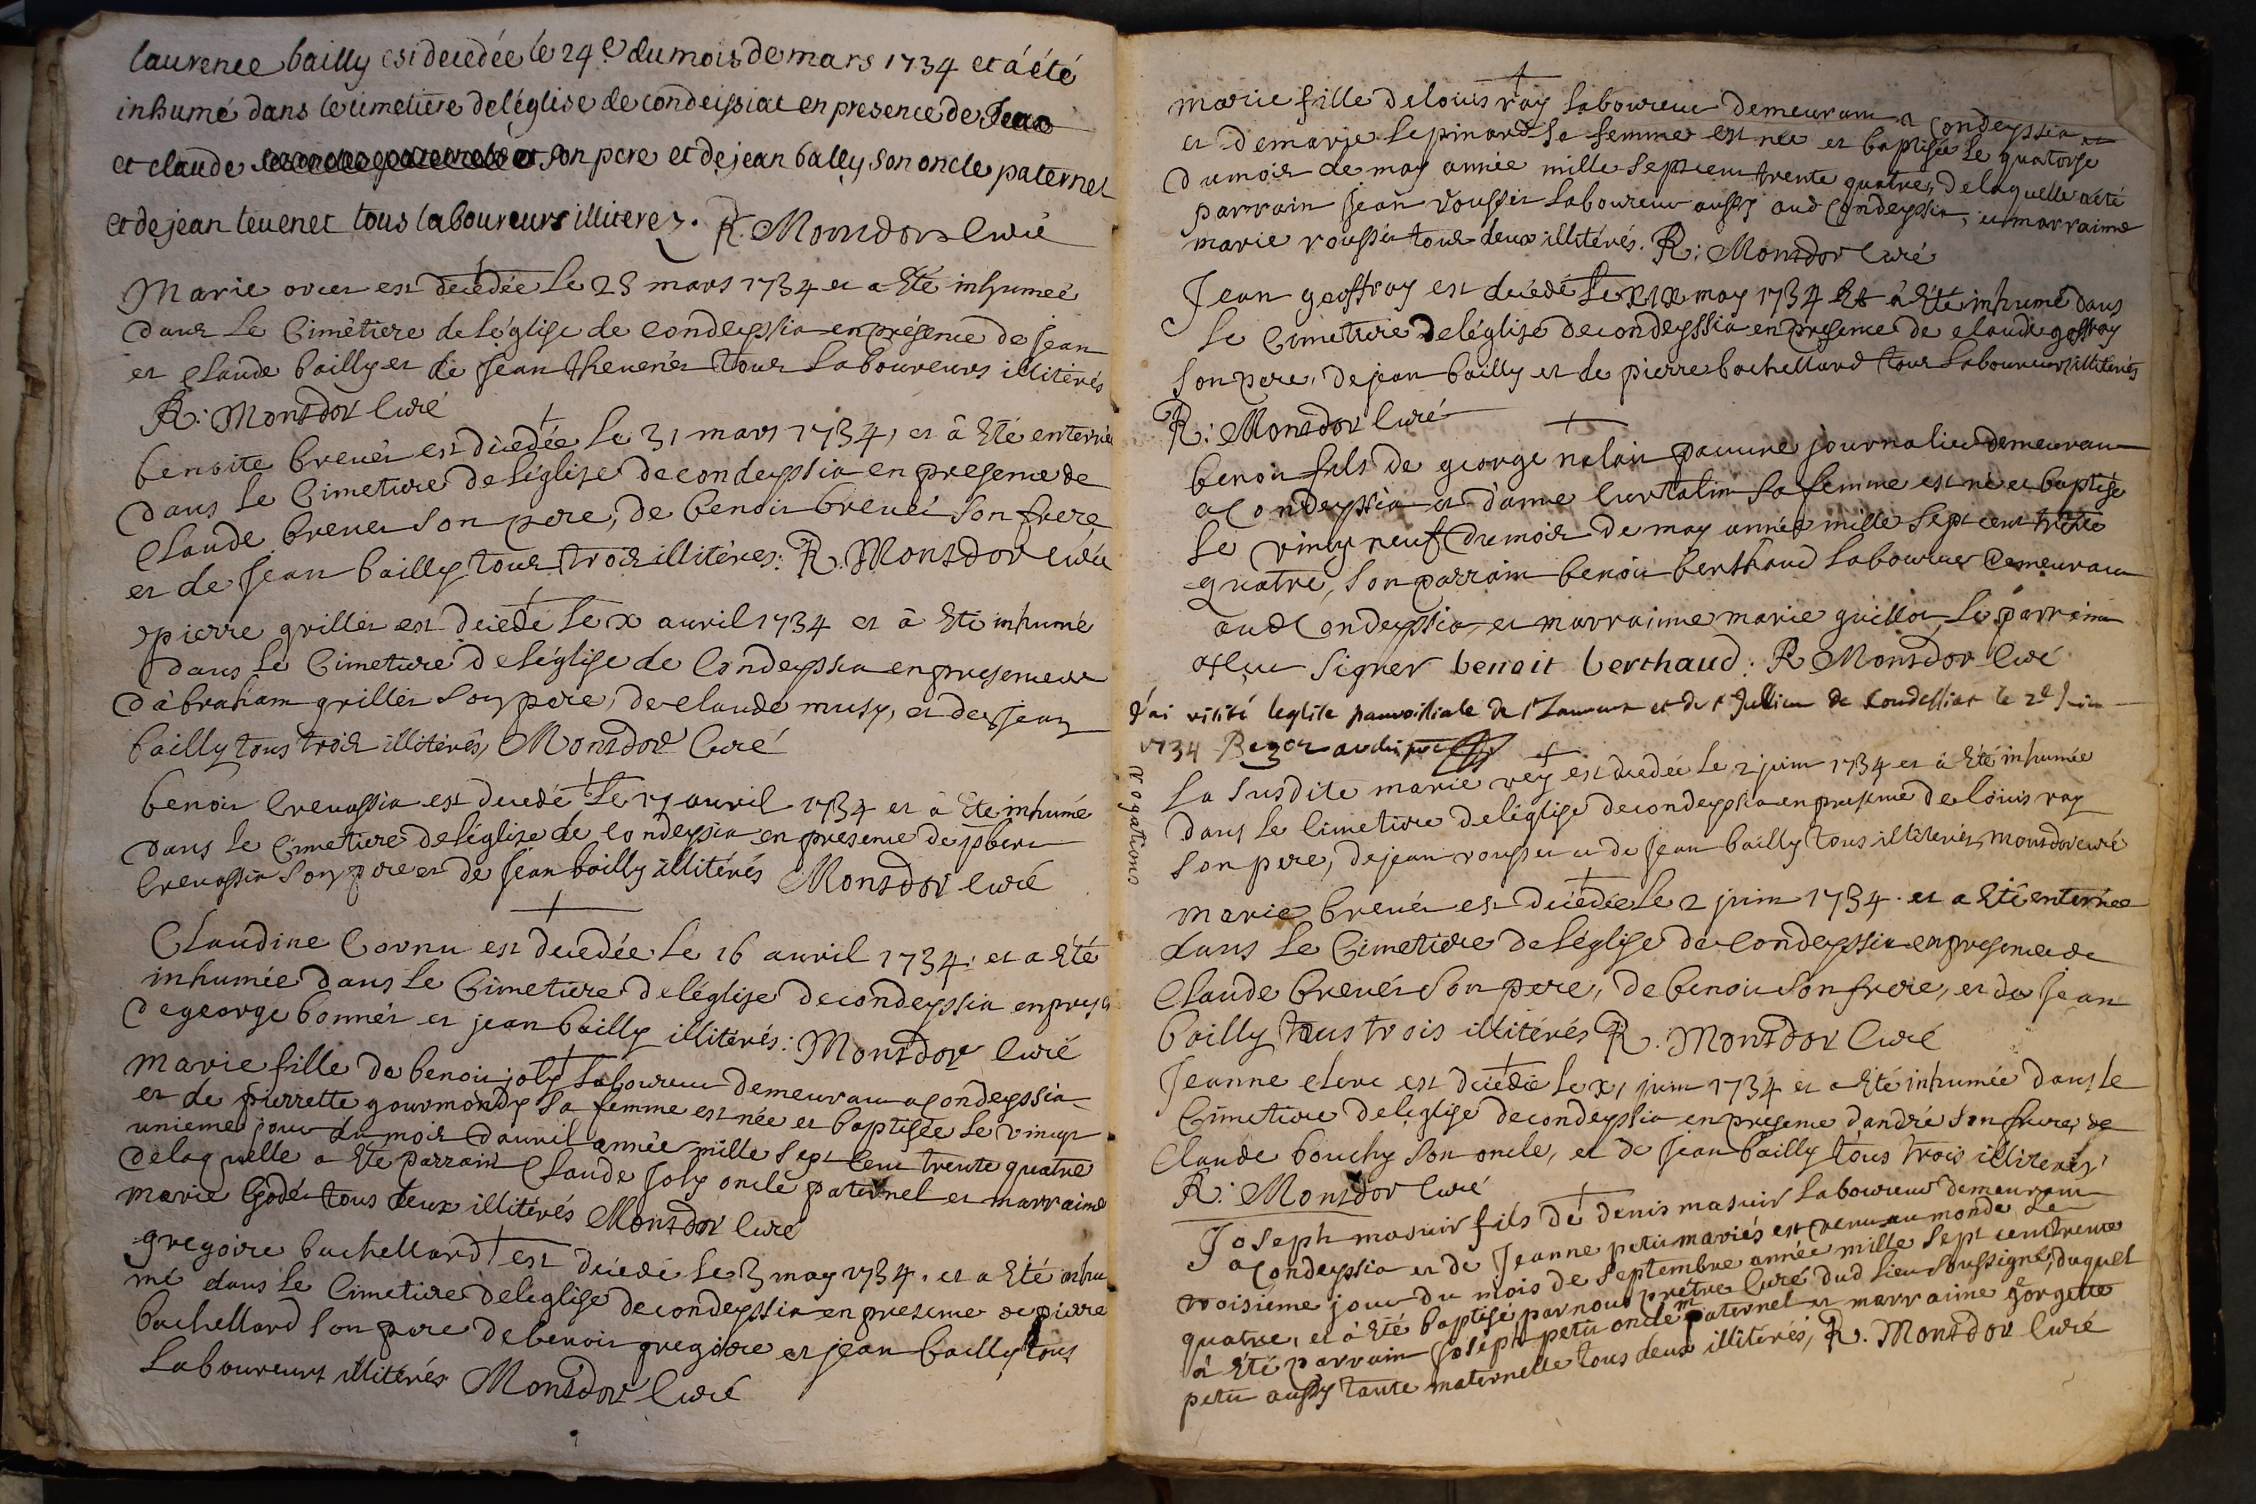 laurence bailly est decedée le 24.e du mois de mars 1734 et a été
inhumé dans le cimetiere de l'église de condeissiat en presence de Jean
et claude son pere et de jean bally son oncle paternel
et de jean tevenet tous laboureurs illiterez. R. Monsdor curé
Marie orcet est decedée le 28 mars 1734 et a Eté inhumeé
dans le Cimètiere de l'église de condeyssia en présence de Jean
et claude bailly et de Jean thevenét tous Laboureurs illitérés
R: Monsdor Curé
benoite brevét est decedée le 31 mars 1734, et â Eté enterrée
dans le Cimetiere de l'église de condeyssia en presence de
claude brevet son pere, de benoit brevét son frere
et de Jean bailly tous trois illitéres: R. Monsdor curé
pierre grillet est decedé le x avril 1734 et â Eté inhumé
dans le Cimetiere de l'église de Condeyssia en presence
d'abraham grillet son pere, de claude musy, et de Jean
bailly tous trois illitérés, Monsdor Curé
benoit Crevassia est decedé le avril 1734 et â Eté inhumé
dans le Cimetiere de l'église de Condeyssia en presence de
Crevassia son pere et de Jean bailly illitérés Monsdor Curé
Claudine Cornu est decedée le 16 avril 1734. et a Eté
inhumée dans le Cimetiere de l'église de condeyssia en pres
de george bonnét et jean bailly illitérés: Monsdor Curé
Marie fille de benoit joly Laboureur demeurant a Condeyssia
et de pierrette gourmondy sa femme est née et baptisée le vingt
unieme jour du mois d'avril année mille sept Cent trente quatre
de laquelle a Eté parrain Claude Joly oncle paternel et marraine
marie Godét tous deux illitérés Monsdor Curé
gregoire bachellard est decedé le 3 may 1734. et a Eté inhu
mé dans le Cimetiere de l'église de condeyssia en presence de pierre
bachellard son pere de benoit gregoire et jean bailly tous
Laboureurs illitérés Monsdor Curé
marie fille de Louis ray laboureur demeurant a Condeyssia
et de marie Lepinard sa femme est née et baptisée le quatorze
du mois de may année mille sept cent trente quatre, de laquelle a été
parrain Jean rousset Laboureur aussy aud Condeyssia, et marraine
marie rousset tous deux illitérés. R: Monsdor Curé
Jean geoffray est decedé le xix may 1734 Et â Eté inhumé dans
le Cimetiere de l'église de condeyssia en presence de claude geoffray
son pere, de jean bailly et de pierre bachellard tous Laboureurs illitérés
R: Monsdor Curé
benoit fils de george nalait pauvre journalier demeurant
a Condeyssia et d'anne Curtalin sa femme est né et baptisé
le vingt neuf du mois de may année mille sept cent trente
quatre, son parrain benoit berthaud Laboureur demeurant
aud Condeyssia, et marraine marie guillot, le parrain
a sçu signer benoit berthaud. R Monsdor Curé
J'ai visité l'eglise parroissiale de st Laurent et de st Jullien de Condessiat le 2e Juin
1734 archiptre
rogations
La susdite marie rey est decedée le 2 juin 1734 et â Eté inhumée
dans le Cimetiere de l'église de condeyssia en presence de louis ray
son pere, de jean rousset et de Jean bailly tous illitérés, Monsdor curé
marie brevét est décedée le 2 juin 1734. et a Eté enterrée
dans le Cimetiere de l'église de Condeyssia en presence de
Claude brevét son pere, de benoit son frere, et de Jean
bailly tous trois illitérés R. Monsdor Curé
Jeanne clerc est decedée le xi juin 1734 et a Eté inhumée dans le
Cimetiere de l'eglise de condeyssia en presence d'andré son frere, de
Claude bouchy son oncle, et de Jean bailly tous trois illiterés
R: Monsdor Curé
Joseph masuir fils de denis masuir Laboureur demeurant
a Condeyssia et de Jeanne petit mariés est venu au monde le
troisieme jour du mois de septembre année mille sept cent trente
quatre, et â Eté baptisé par nous prêtre Curé dud lieu soussigné, duquel
a Eté parrain Joseph petit oncle maternel et marraine georgette
petit aussy tante maternelle tous deux illitérés, R. Monsdor Curé